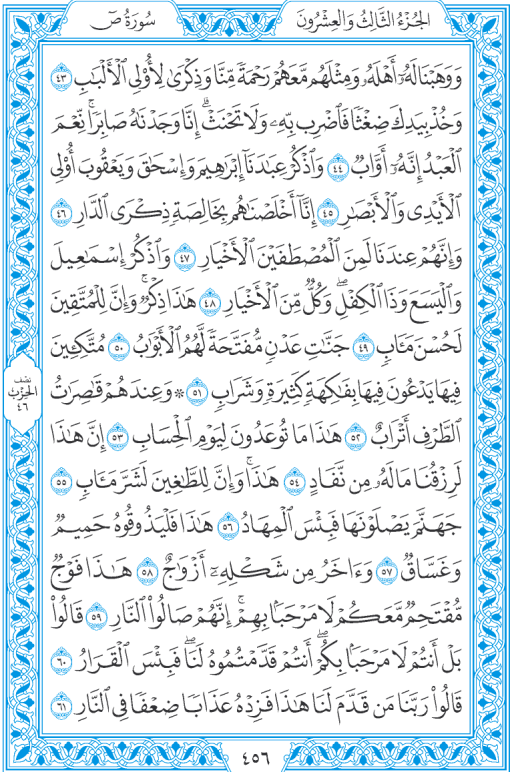 الجُزْءُ الثَّالِثُ وَالعِشْرُونَ
سُورَةُ صٓ
وَوَهَبْنَا لَهُۥٓ أَهْلَهُۥ وَمِثْلَهُم مَّعَهُمْ رَحْمَةً مِّنَّا وَذِكْرَىٰ لِأُو۟لِى ٱلْأَلْبَٰبِ ٤٣
وَخُذْ بِيَدِكَ ضِغْثًا فَٱضْرِب بِّهِۦ وَلَا تَحْنَثْ ۗ إِنَّا وَجَدْنَٰهُ صَابِرًا ۚ نِّعْمَ
ٱلْعَبْدُ إِنَّهُۥٓ أَوَّابٌ ٤٤ وَٱذْكُرْ عِبَٰدَنَآ إِبْرَٰهِيمَ وَإِسْحَٰقَ وَيَعْقُوبَ أُو۟لِى
ٱلْأَيْدِى وَٱلْأَبْصَٰرِ ٤٥ إِنَّآ أَخْلَصْنَٰهُم بِخَالِصَةٍ ذِكْرَى ٱلدَّارِ ٤٦
وَإِنَّهُمْ عِندَنَا لَمِنَ ٱلْمُصْطَفَيْنَ ٱلْأَخْيَارِ ٤٧ وَٱذْكُرْ إِسْمَٰعِيلَ
وَٱلْيَسَعَ وَذَا ٱلْكِفْلِ ۖ وَكُلٌّ مِّنَ ٱلْأَخْيَارِ ٤٨ هَٰذَا ذِكْرٌ ۚ وَإِنَّ لِلْمُتَّقِينَ
لَحُسْنَ مَـَٔابٍ ٤٩ جَنَّٰتِ عَدْنٍ مُّفَتَّحَةً لَّهُمُ ٱلْأَبْوَٰبُ ٥٠ مُتَّكِـِٔينَ
فِيهَا يَدْعُونَ فِيهَا بِفَٰكِهَةٍ كَثِيرَةٍ وَشَرَابٍ ٥١ ۞ وَعِندَهُمْ قَٰصِرَٰتُ
ٱلطَّرْفِ أَتْرَابٌ ٥٢ هَٰذَا مَا تُوعَدُونَ لِيَوْمِ ٱلْحِسَابِ ٥٣ إِنَّ هَٰذَا
لَرِزْقُنَا مَا لَهُۥ مِن نَّفَادٍ ٥٤ هَٰذَا ۚ وَإِنَّ لِلطَّٰغِينَ لَشَرَّ مَـَٔابٍ ٥٥
جَهَنَّمَ يَصْلَوْنَهَا فَبِئْسَ ٱلْمِهَادُ ٥٦ هَٰذَا فَلْيَذُوقُوهُ حَمِيمٌ
وَغَسَّاقٌ ٥٧ وَءَاخَرُ مِن شَكْلِهِۦٓ أَزْوَٰجٌ ٥٨ هَٰذَا فَوْجٌ
مُّقْتَحِمٌ مَّعَكُمْ ۖ لَا مَرْحَبًۢا بِهِمْ ۚ إِنَّهُمْ صَالُوا۟ ٱلنَّارِ ٥٩ قَالُوا۟
بَلْ أَنتُمْ لَا مَرْحَبًۢا بِكُمْ ۖ أَنتُمْ قَدَّمْتُمُوهُ لَنَا ۖ فَبِئْسَ ٱلْقَرَارُ ٦٠
قَالُوا۟ رَبَّنَا مَن قَدَّمَ لَنَا هَٰذَا فَزِدْهُ عَذَابًا ضِعْفًا فِى ٱلنَّارِ ٦١
نصف
الحزب
٤٦
٤٥٦